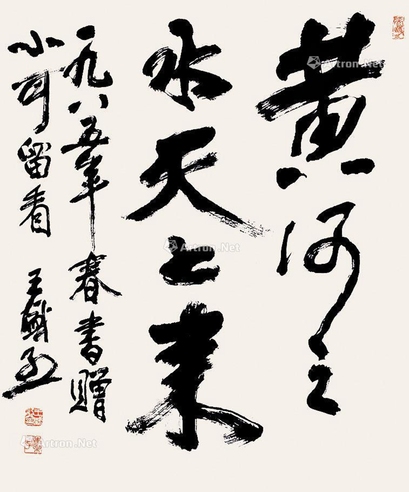 黄河之
水天上来
一九八五年春书赠
小可留看 王
Artron.Net
Artron.Net
Artron.Net